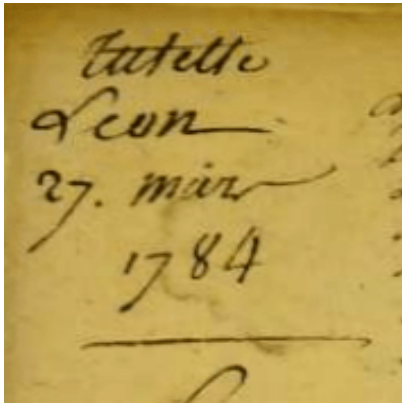 tutelle
Leon
27. mars
1784